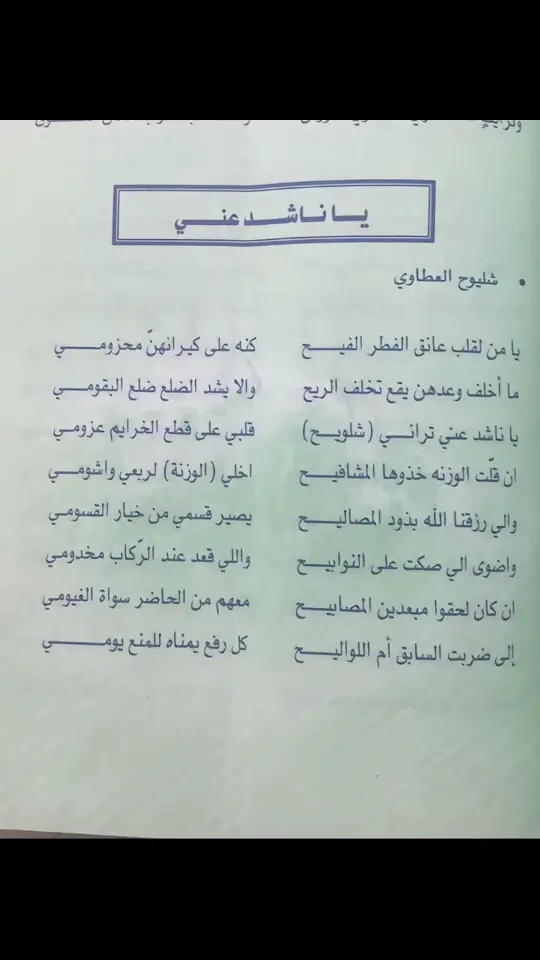 يا ناشد عني
• شليوح العطاوي
يا من لقلب عانق الفطر الفيح كنه على كيرانهنّ محزومي
ما أخلف وعدهن يقع تخلف الريح والا يشد الضلع ضلع البقومي
يا ناشد عني تراني (شلويح) قلبي على قطع الخرايم عزومي
ان قلّت الوزنه خذوها المشافيح اخلي (الوزنة) لربعي واشومي
والي رزقنا الله بذود المصاليح يصير قسمي من خيار القسومي
واضوى الي صكت على النوابيح واللي قعد عند الرّكاب مخدومي
ان كان لحقوا مبعدين المصابيح معهم من الحاضر سواة الغيومي
إلى ضربت السابق أم اللواليح كل رفع يمناه للمنع يومي